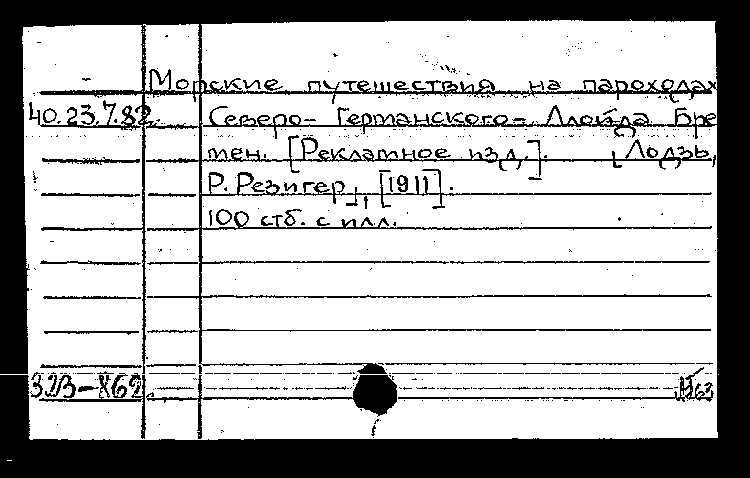 Морские путешествия на пароходах
40.23.7.82. Северо-Германского-Ллойда Бре
мен. [Рекламное изд.]. [Лодзь,
Р. Резигер], [1911].
100 стб. с илл.
323-862